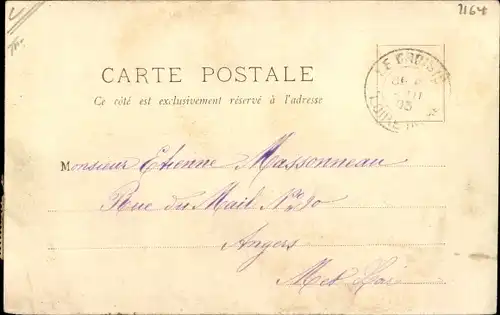 7164
CARTE POSTALE
Ce côté est exclusivement réservé à l'adresse
LE CROISIC
03
LOIRE
Monsieur Etienne Massonneau
Rue du Mail
Angers